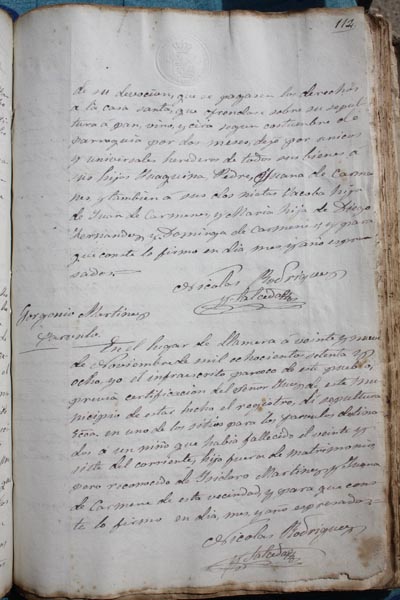 112
de su devocion, que se pagasen los derechos
a la casa santa, que ofrendase sobre su sepul-
tura a pan, vino, y cera segun costumbre de
parroquia por dos meses, dejó por unicos
y universales herederos de todos sus bienes a
sus hijos Juaquina, Pedro, Juana de Carme-
nes y tambien a sus dos nietas Jacoba hija
de Juana de Carmenes, y Maria hija de Diego
Hernandez y Dominga de Carmenes y para
que conste lo firmo en dia mes y año expre-
sados
Nicolas Rodriguez
y Salceda
Gorgonio Martinez
Parvulo
En el lugar de Llamera a veinte y nueve
de Noviembre de mil ochocientos setenta y
ocho, yo el infraescrito parroco de este pueblo,
previa certificacion del señor Juez de este mu-
nicipio de estar hecho el registro, di sepultura
en uno de los sitios para los parvulos destina-
dos a un niño que habia fallecido el veinte y
siete del corriente, hijo fuera de matrimonio
pero reconocido de Isidoro Martinez y
de Carmenes de esta vecindad, y para que cons-
te lo firmo en dia, mes y año expresados
Nicolas Rodriguez
y Salceda